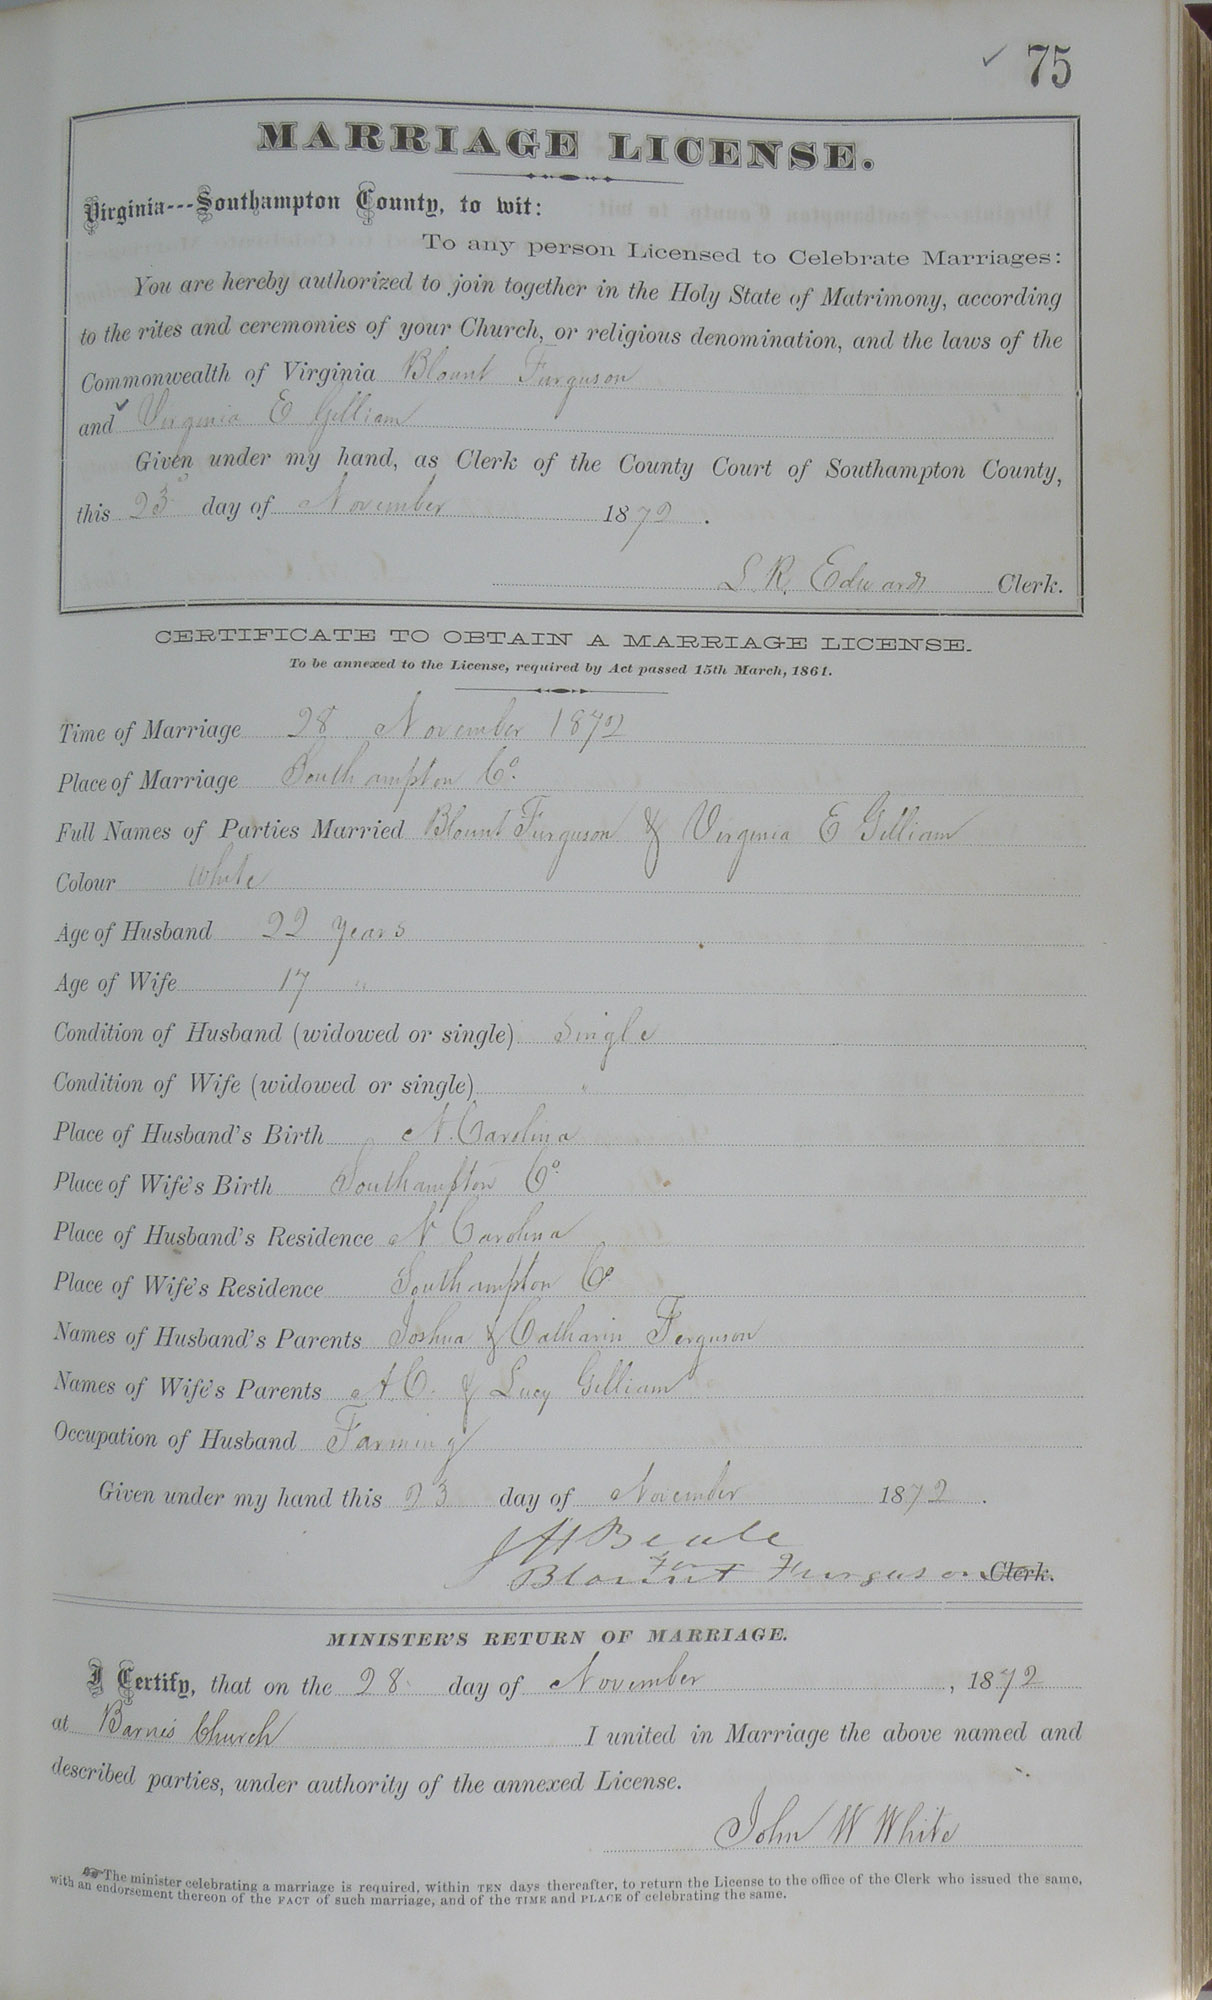 ✓ 75
MARRIAGE LICENSE.
Virginia---Southampton County, to wit:
To any person Licensed to Celebrate Marriages:
You are hereby authorized to join together in the Holy State of Matrimony, according
to the rites and ceremonies of your Church, or religious denomination, and the laws of the
Commonwealth of Virginia Blount Furguson
and ✓ Virginia E Gilliam
Given under my hand, as Clerk of the County Court of Southampton County,
this 23 day of November 1872.
L. R. Edwards Clerk.
CERTIFICATE TO OBTAIN A MARRIAGE LICENSE.
To be annexed to the License, required by Act passed 15th March, 1861.
Time of Marriage 28 November 1872
Place of Marriage Southampton Co.
Full Names of Parties Married Blount Furguson & Virginia E Gilliam
Colour White
Age of Husband 22 years
Age of Wife 17 "
Condition of Husband (widowed or single) Single
Condition of Wife (widowed or single) "
Place of Husband's Birth N. Carolina
Place of Wife's Birth Southampton Co.
Place of Husband's Residence N Carolina
Place of Wife's Residence Southampton Co
Names of Husband's Parents Joshua & Catharin Ferguson
Names of Wife's Parents A. C. & Lucy Gilliam
Occupation of Husband Farming
Given under my hand this 23 day of November 1872.
J H Beale
for
Blount Furguson Clerk.
MINISTER'S RETURN OF MARRIAGE.
I Certify, that on the 28 day of November, 1872
at Barnes Church I united in Marriage the above named and
described parties, under authority of the annexed License.
John W White
The minister celebrating a marriage is required, within TEN days thereafter, to return the License to the office of the Clerk who issued the same,
with an endorsement thereon of the FACT of such marriage, and of the TIME and PLACE of celebrating the same.